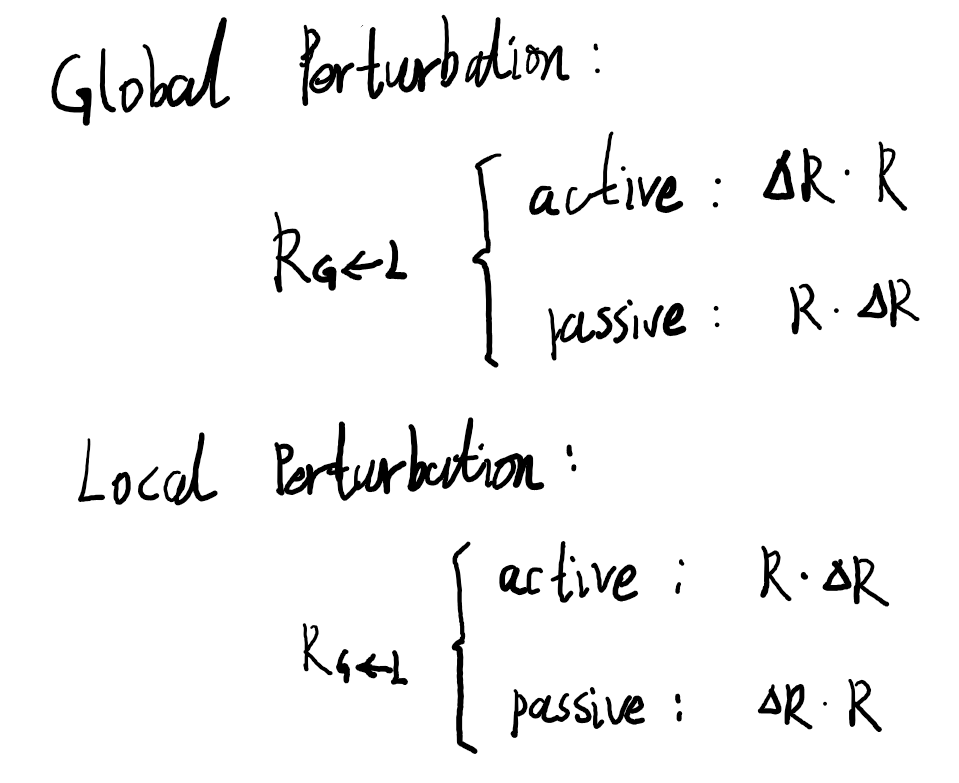 Global Perturbation :
active : ΔR · R
R_{G←L}
passive : R · ΔR
Local Perturbation :
active : R · ΔR
R_{G←L}
passive : ΔR · R